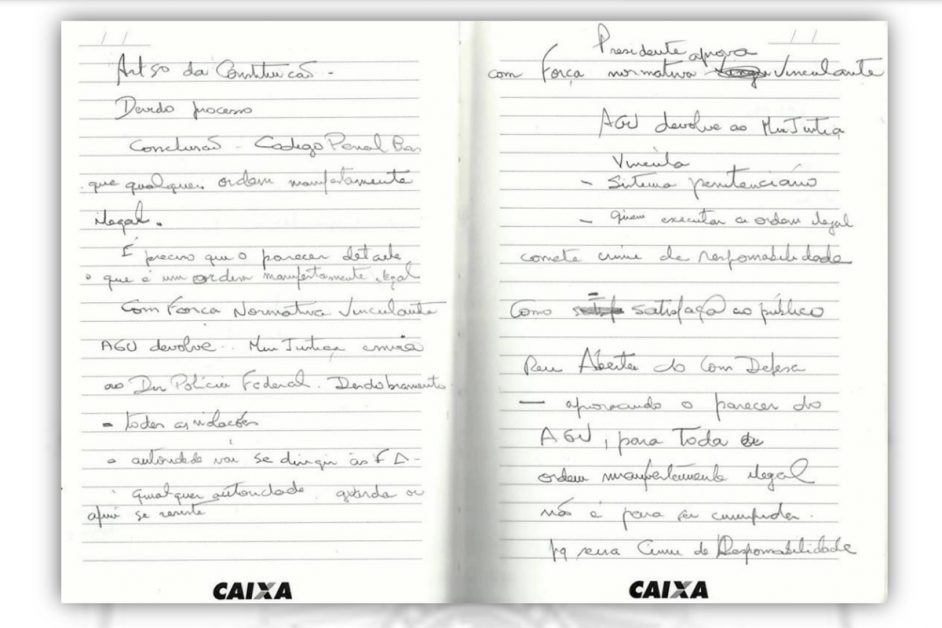 Art 50 da Constituição -
Devido processo
Conclusão - Codego Penal Bra
que qualquer ordem manifestamente
ilegal.
É preciso que o parecer detalhe
que é um ordem manifestamente ilegal
Com Força Normativa Vinculante
AGU devolve Min Justiça envia
ao Dir Polícia Federal. Desdobramento
- todas as violações
autoridade vai se dirigir às
qualquer autoridade ou
se
CAIXA
Presidente aprova
com Força normativa Vinculante
AGU devolve ao Min Justiça
Vincula
- Sistema penitenciário
- quem executar a ordem ilegal
comete crime de responsabilidade
Como satisfaça ao público
Reu Aberta do Com Defesa
- aprovando o parecer do
AGU, para Toda
ordem manifestamente ilegal
não é para ser cumprida.
pq seria Crime de Responsabilidade
CAIXA